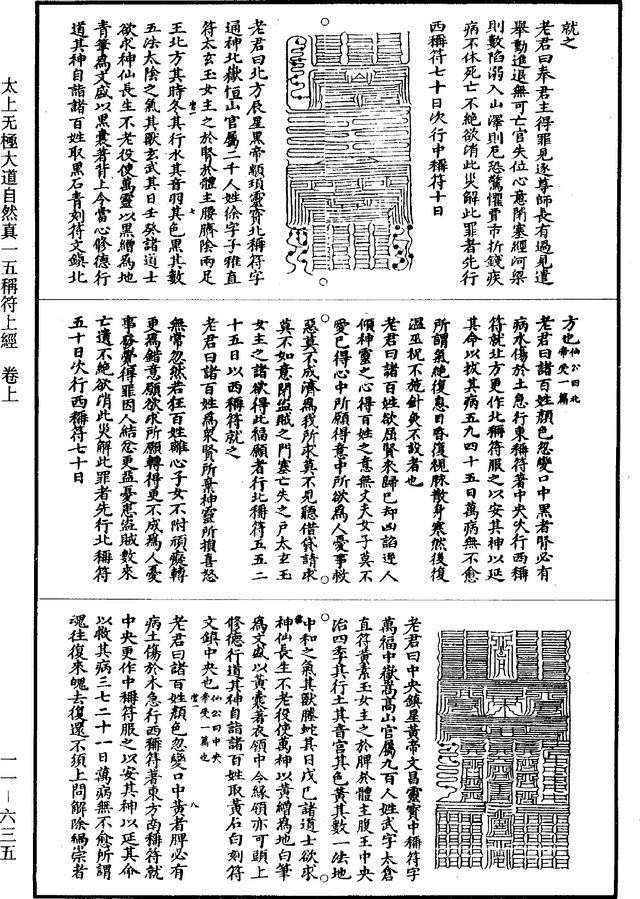 就之
老君曰奉君主得罪見逐尊師長有過見遣
舉動進退無可亡官失位心意閉塞經河梁
則數陷溺入山澤則厄恐驚懼賈市折錢疾
病不休死亡不絕欲消此災解此罪者先行
西稱符七十日次行中稱符十日
老君曰北方辰星黑帝顓頊靈寶北稱符字
通神北嶽恒山官屬二千人姓徐字子雅直
符太玄玉女主之於腎於體主腰臍陰兩足
王北方其時冬其行水其音羽其色黑其數
五法太陰之氣其獸玄武其日壬癸諸道士
欲求神仙長生不老役使萬靈以黑繒為地
青筆為文盛以黑囊著背上令當心修德行
道其神自詣諸百姓取黑石青刻符文鎮北
方也仙公曰北帝受一篇
老君曰諸百姓顏色忽變口中黑者腎必有
病水傷於土急行東稱符著中央次行西稱
符就北方更作北稱符服之以安其神以延
其命以救其病五九四十五日萬病無不愈
所謂氣絕復息目昏復視脉散身寒然後復
溫巫祝不施針灸不設者也
老君曰諸百姓欲屈賢來歸已却凶諂逆人
傾神靈之心得百姓之意無丈夫女子莫不
愛已得心中所願得意中所欲為人憂事救
惡莫不成濟為我所求莫不見聽借貸請求
莫不如意閉盜賊之門塞亡失之戶太玄玉
女主之諸欲得此福願者行北稱符五五二
十五日以西稱符就之
老君曰諸百姓為眾賢所棄神靈所損喜怒
無常忽然若狂百姓離心子女不附頑癡轉
更為錯意願欲求所願轉得更不成為人憂
事發覺得罪因人結忿更益憂患盜賊數來
亡遺不絕欲消此災解此罪者先行北稱符
五十日次行西稱符七十日
老君曰中央鎮星黃帝文昌靈寶中稱符字
萬福中嶽嵩高山官屬九百人姓武字太倉
直符黃素玉女主之於脾於體主腹王中央
治四季其行土其音宮其色黃其數一法地
中和之氣其獸螣蛇其日戊巳諸道士欲求
神仙長生不老役使萬神以黃繒為地白筆
為文盛以黃囊著衣領中令緣領亦可頭上
修德行道其神自詣諸百姓取黃石白刻符
文鎮中央也仙公曰中央帝受一篇也
老君曰諸百姓顏色忽變口中黃者脾必有
病土傷於木急行西稱符著東方南稱符就
中央更作中稱符服之以安其神以延其命
以救其病三七二十一日萬病無不愈所謂
魂往復來魄去復還不須上問解除禍祟者
太上无極大道自然真一五稱符上經 卷上
一一－六三五